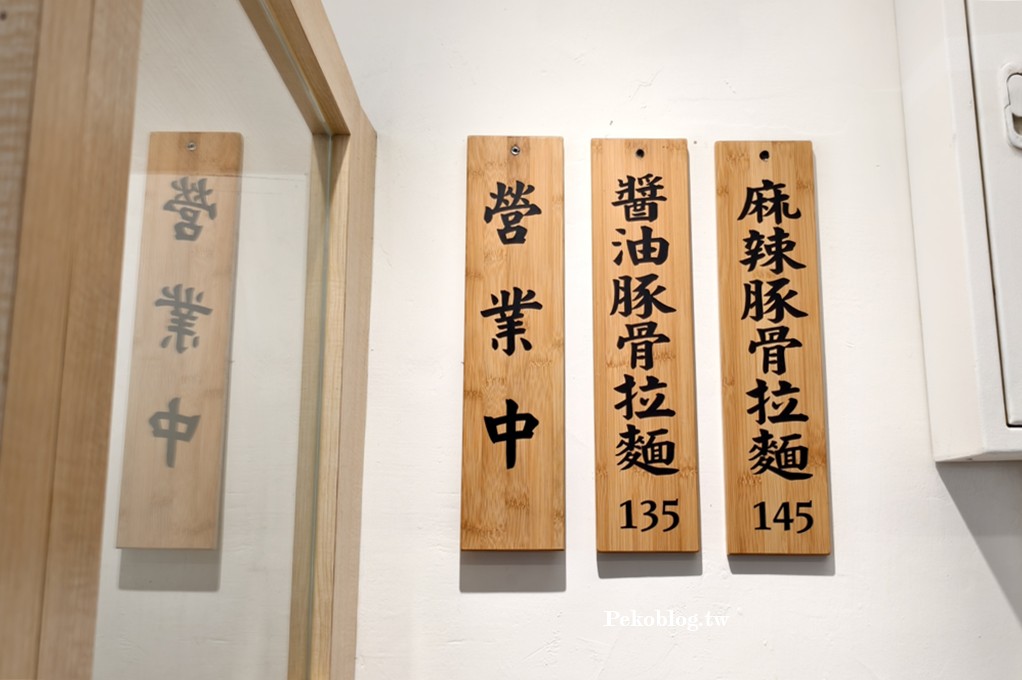 營業中
醬油豚骨拉麵
135
麻辣豚骨拉麵
145
Pekoblog.tw